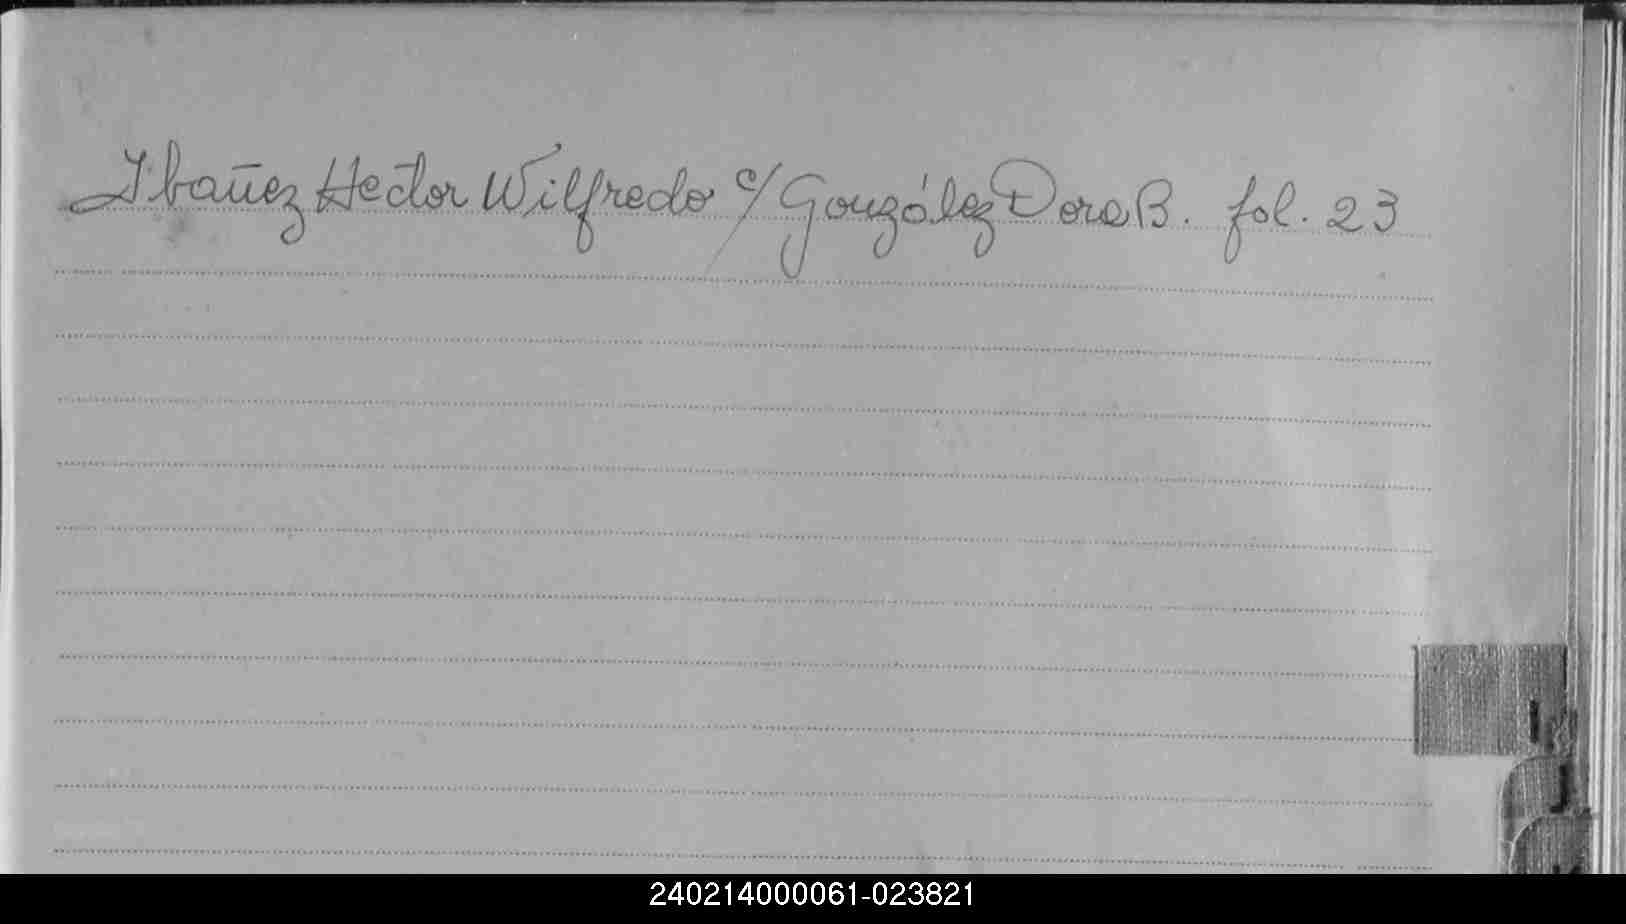 Ibañez Hector Wilfredo c/ González Dora B. fol. 23
I
J
240214000061-023821